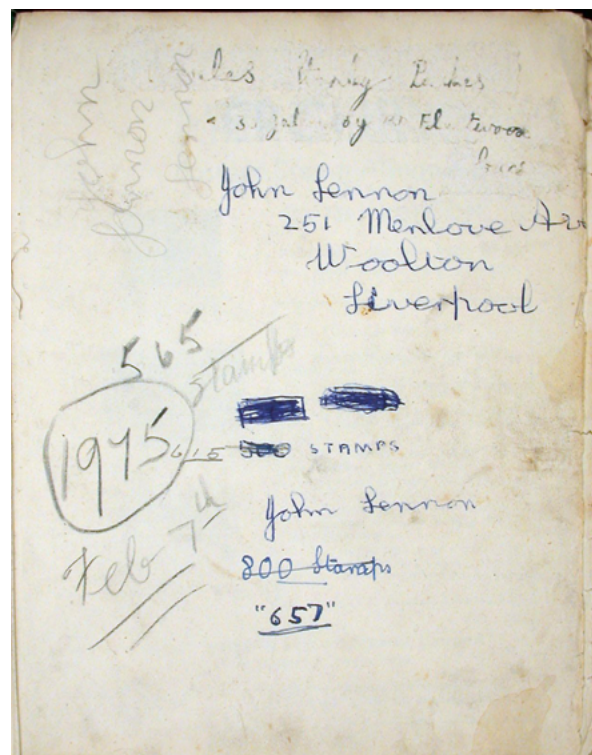 John
Lennon
Lennon
by
John Lennon
251 Menlove Av
Woolton
Liverpool
565
stamps
1975
615 500 STAMPS
Feb 7th
John Lennon
800 Stamps
"657"